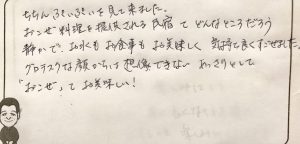 ちちんぷいぷいを見て来ました。
おこぜ料理を提供される民宿ってどんなところだろう
静かで、お水もお食事もお美味しく気持ち良くすごせました。
グロテスクな顔からは想像できないあっさりとして
"おこぜ"ってお美味しい!